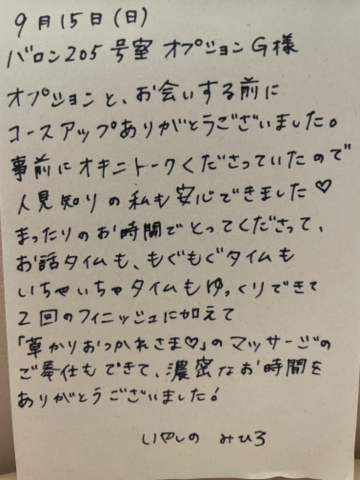 9月15日(日)
バロン205号室 オプションG様
オプションと、お会いする前に
コースアップありがとうございました。
事前にオキニトークくださっていたので
人見知りの私も安心できました♡
まったりのお時間でとってくださって、
お話タイムも、もぐもぐタイムも
いちゃいちゃタイムもゆっくりできて
2回のフィニッシュに加えて
「草かりおつかれさま♡」のマッサージの
ご奉仕もできて、濃密なお時間を
ありがとうございました!
いやしの みひろ